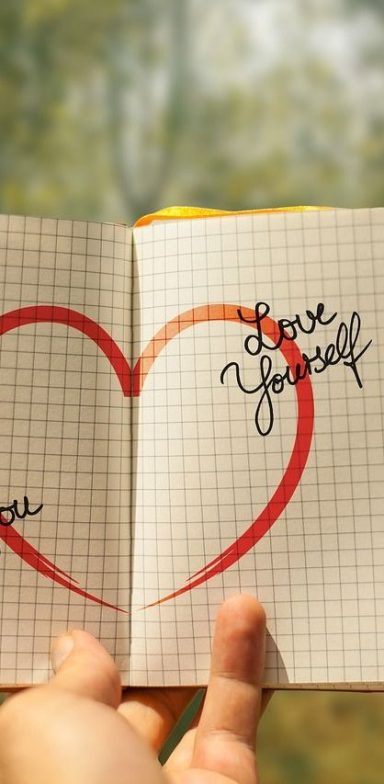 Love
Yourself
ou